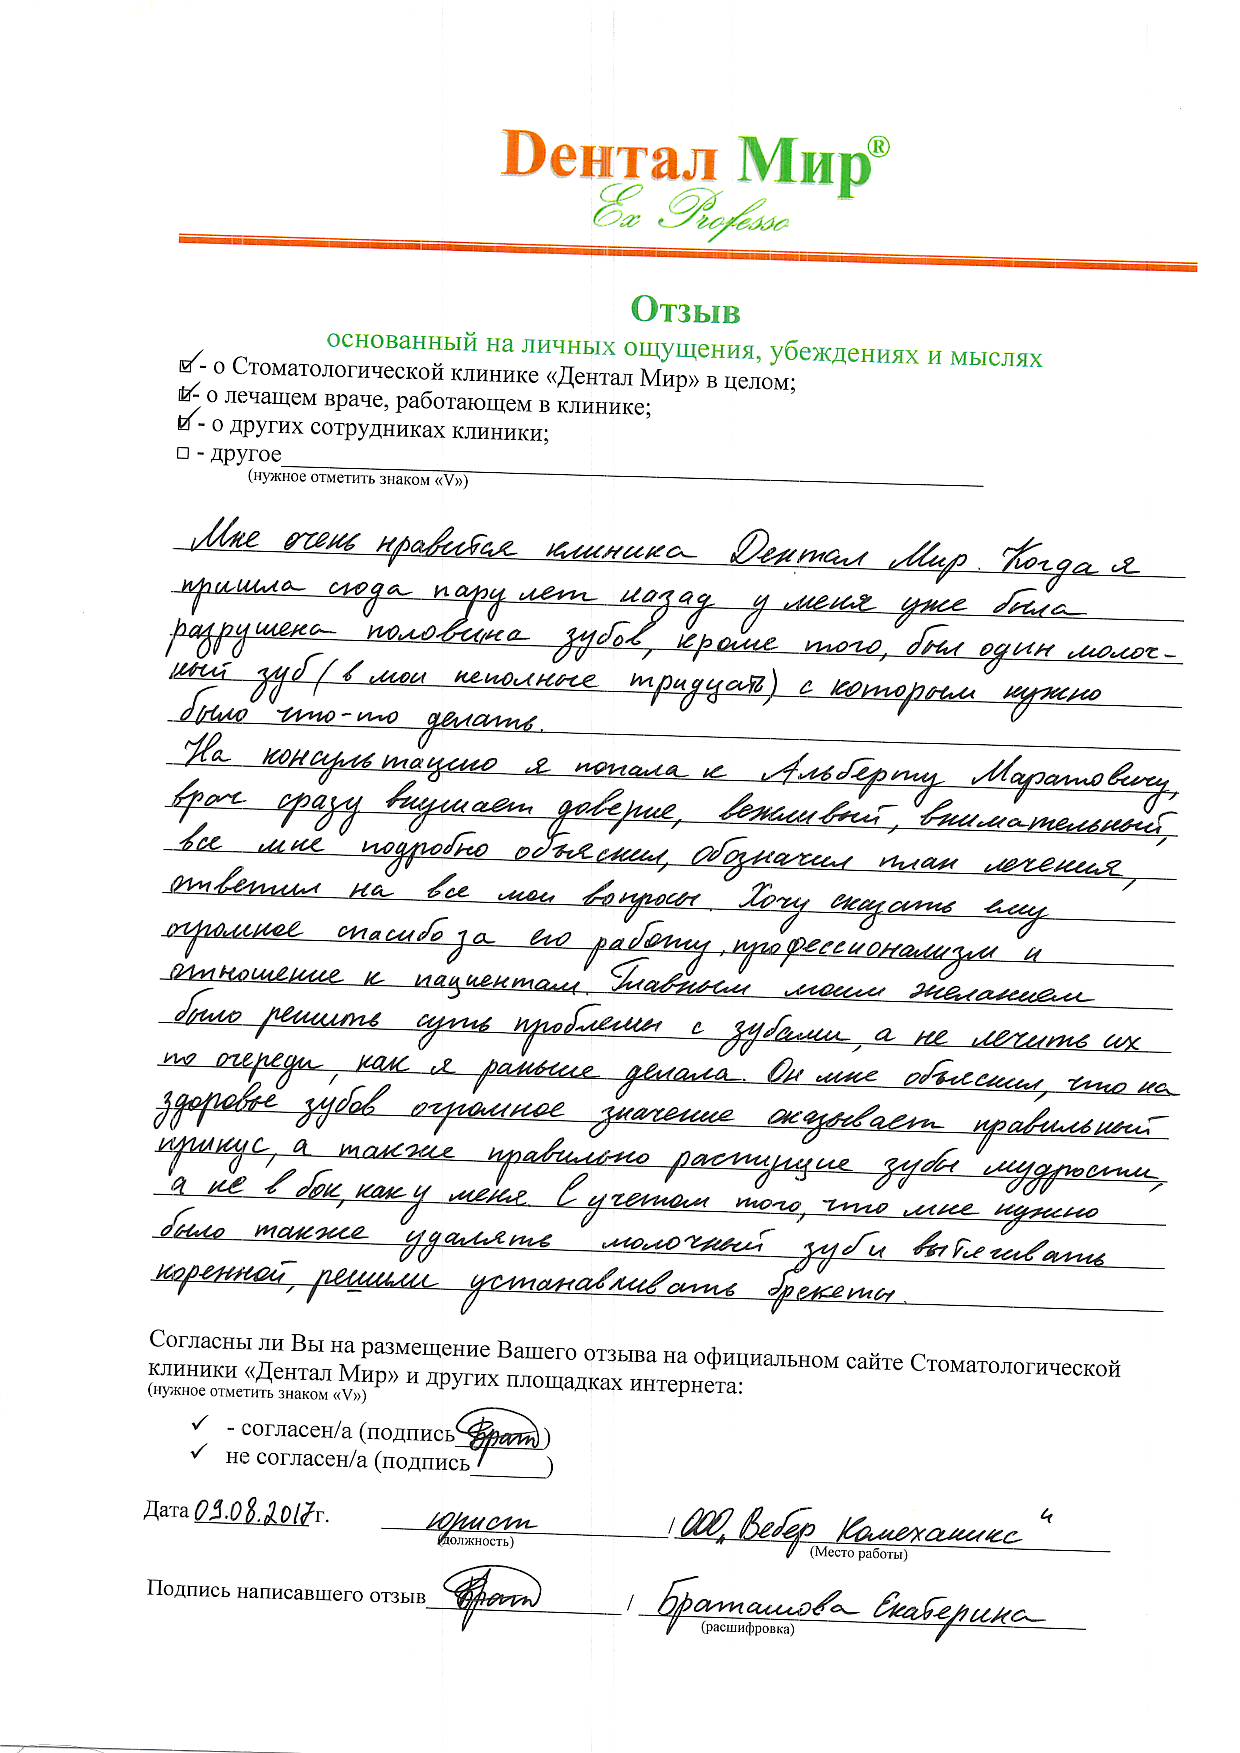 Dентал Мир®
Ex Professo
Отзыв
основанный на личных ощущения, убеждениях и мыслях
☑ - о Стоматологической клинике «Дентал Мир» в целом;
☑ - о лечащем враче, работающем в клинике;
☑ - о других сотрудниках клиники;
□ - другое
(нужное отметить знаком «V»)
Мне очень нравится клиника Дентал Мир. Когда я
пришла сюда пару лет назад у меня уже была
разрушена половина зубов, кроме того, был один молоч-
ный зуб (в мои неполные тридцать) с которым нужно
было что-то делать.
На консультацию я попала к Альберту Маратовичу,
врач сразу внушает доверие, вежливый, внимательный,
все мне подробно объяснил, обозначил план лечения,
ответил на все мои вопросы. Хочу сказать ему
огромное спасибо за его работу, профессионализм и
отношение к пациентам. Главным моим желанием
было решить суть проблемы с зубами, а не лечить их
по очереди, как я раньше делала. Он мне объяснил, что на
здоровье зубов огромное значение оказывает правильный
прикус, а также правильно растущие зубы мудрости,
а не в бок, как у меня. С учетом того, что мне нужно
было также удалять молочный зуб и вытягивать
коренной, решили устанавливать брекеты.
Согласны ли Вы на размещение Вашего отзыва на официальном сайте Стоматологической
клиники «Дентал Мир» и других площадках интернета:
(нужное отметить знаком «V»)
✓ - согласен/а (подпись Брат)
✓ не согласен/а (подпись______)
Дата 09.08.2017г. юрист / ООО „Вебер Комеханикс"
(должность) (Место работы)
Подпись написавшего отзыв Брат / Браташова Екатерина
(расшифровка)